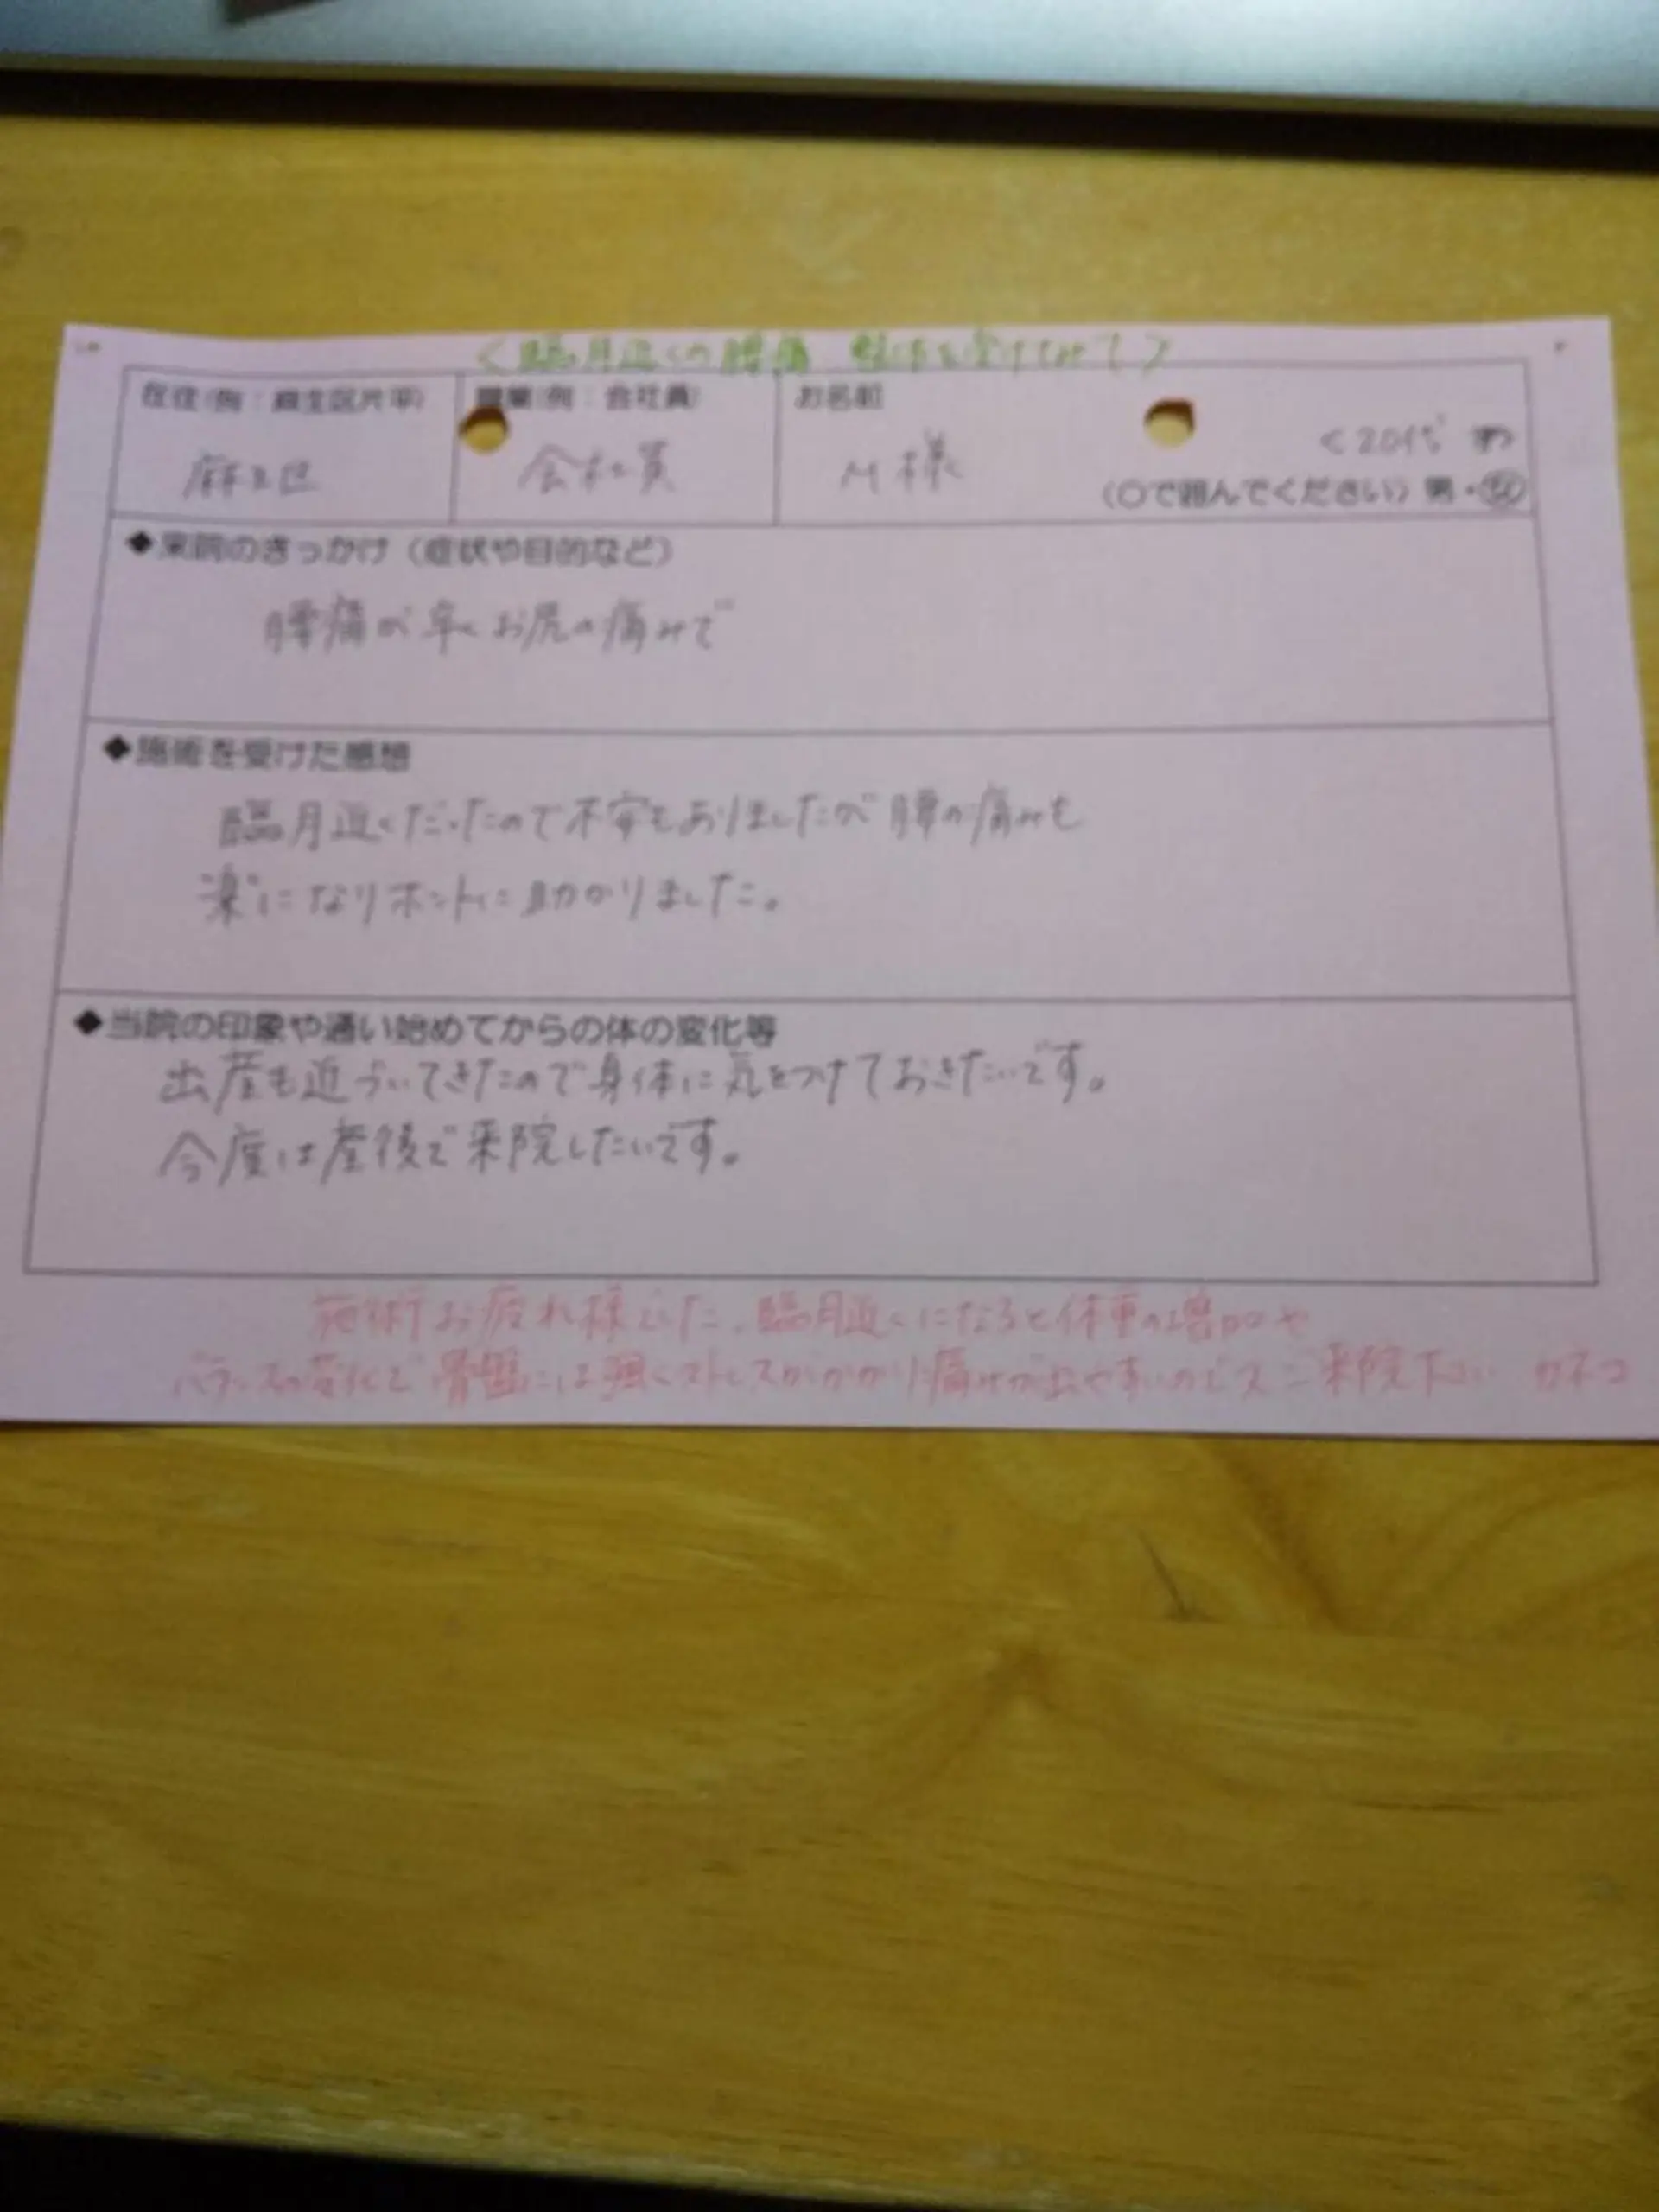 <臨月近くの腰痛 整体を受けてみて>
在住(例：麻生区片平) 職業(例：会社員) お名前
<20代
麻生区 会社員 M様
(〇で囲んでください) 男・女
◆来院のきっかけ（症状や目的など）
腰痛が お尻の痛みで
◆施術を受けた感想
臨月近くだったので不安もありましたが 腰の痛みも
楽になりホントに助かりました。
◆当院の印象や通い始めてからの体の変化等
出産も近づいてきたので身体に気をつけておきたいです。
今度は産後で来院したいです。
施術お疲れ様でした。臨月近くになると体重の増加や
バランスの変化で骨盤には強くストレスがかかり痛みが出やすいので ご来院下さい カネコ